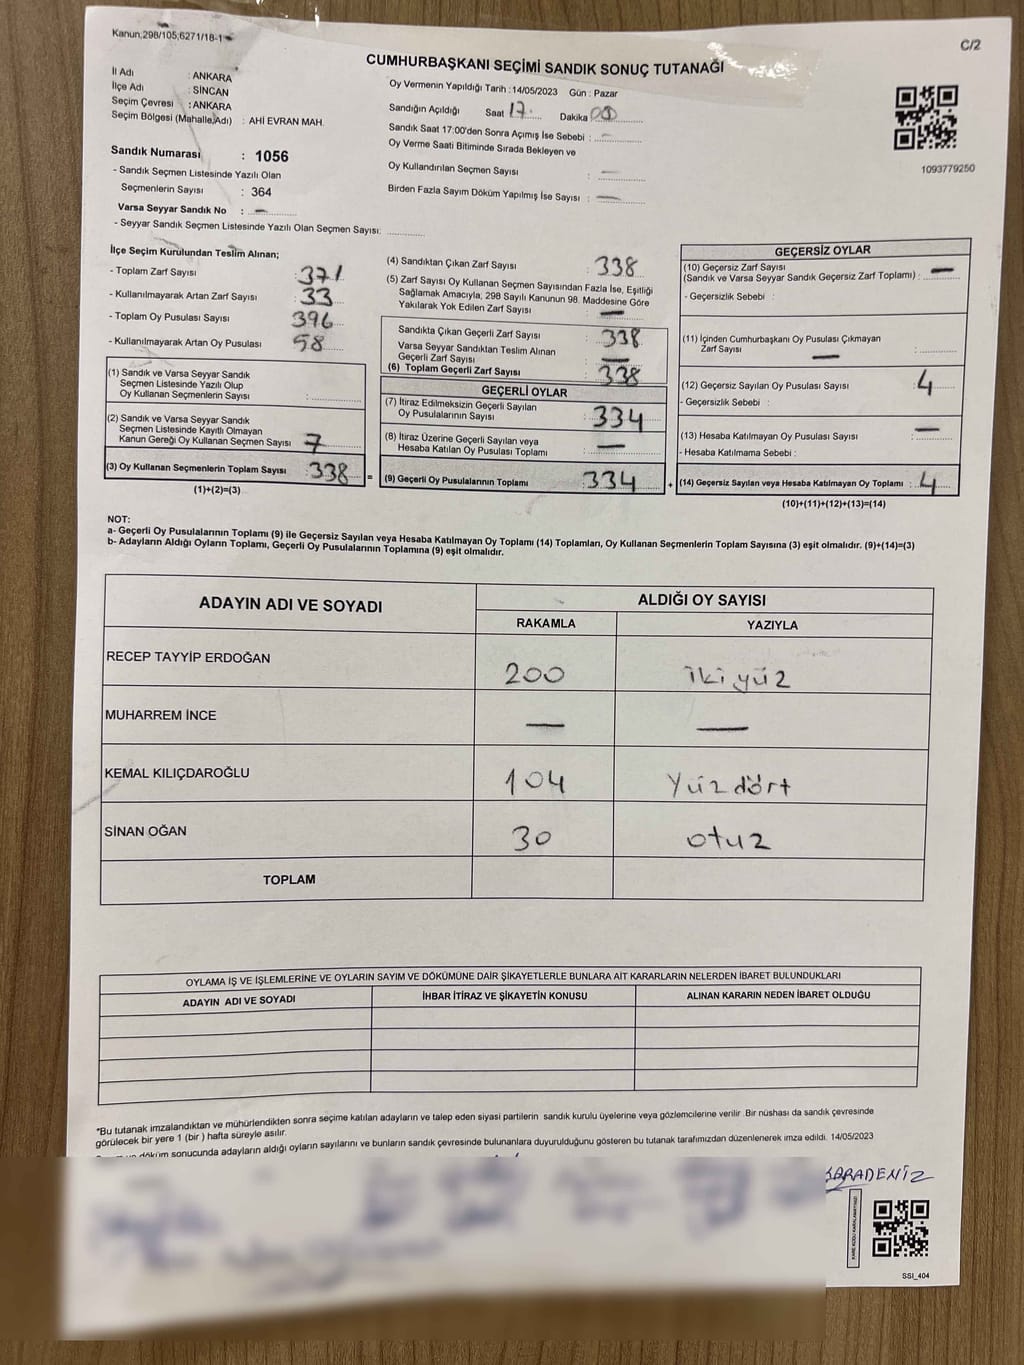 Kanun;298/105;6271/18-1
C/2
CUMHURBAŞKANI SEÇİMİ SANDIK SONUÇ TUTANAĞI
İl Adı : ANKARA
İlçe Adı : SİNCAN
Seçim Çevresi : ANKARA
Seçim Bölgesi (Mahalle,Adı) : AHİ EVRAN MAH.
Sandık Numarası : 1056
- Sandık Seçmen Listesinde Yazılı Olan
Seçmenlerin Sayısı : 364
Varsa Seyyar Sandık No : —
- Seyyar Sandık Seçmen Listesinde Yazılı Olan Seçmen Sayısı:
Oy Vermenin Yapıldığı Tarih :14/05/2023 Gün : Pazar
Sandığın Açıldığı Saat 17 Dakika
Sandık Saat 17:00'den Sonra Açımış İse Sebebi : —
Oy Verme Saati Bitiminde Sırada Bekleyen ve
Oy Kullandırılan Seçmen Sayısı : —
Birden Fazla Sayım Döküm Yapılmış İse Sayısı : —
1093779250
İlçe Seçim Kurulundan Teslim Alınan;
- Toplam Zarf Sayısı : 371
- Kullanılmayarak Artan Zarf Sayısı : 33
- Toplam Oy Pusulası Sayısı : 396
- Kullanılmayarak Artan Oy Pusulası : 58
(1) Sandık ve Varsa Seyyar Sandık
Seçmen Listesinde Yazılı Olup
Oy Kullanan Seçmenlerin Sayısı :
(2) Sandık ve Varsa Seyyar Sandık
Seçmen Listesinde Kayıtlı Olmayan
Kanun Gereği Oy Kullanan Seçmen Sayısı : 7
(3) Oy Kullanan Seçmenlerin Toplam Sayısı : 338 =
(1)+(2)=(3)
(4) Sandıktan Çıkan Zarf Sayısı : 338
(5) Zarf Sayısı Oy Kullanan Seçmen Sayısından Fazla İse, Eşitliği
Sağlamak Amacıyla, 298 Sayılı Kanunun 98. Maddesine Göre
Yakılarak Yok Edilen Zarf Sayısı : —
Sandıkta Çıkan Geçerli Zarf Sayısı : 338
Varsa Seyyar Sandıktan Teslim Alınan
Geçerli Zarf Sayısı : —
(6) Toplam Geçerli Zarf Sayısı : 338
GEÇERLİ OYLAR
(7) İtiraz Edilmeksizin Geçerli Sayılan
Oy Pusulalarının Sayısı : 334
(8) İtiraz Üzerine Geçerli Sayılan veya
Hesaba Katılan Oy Pusulası Toplamı : —
(9) Geçerli Oy Pusulalarının Toplamı : 334 +
GEÇERSİZ OYLAR
(10) Geçersiz Zarf Sayısı
(Sandık ve Varsa Seyyar Sandık Geçersiz Zarf Toplamı) : —
- Geçersizlik Sebebi :
(11) İçinden Cumhurbaşkanı Oy Pusulası Çıkmayan
Zarf Sayısı : —
(12) Geçersiz Sayılan Oy Pusulası Sayısı : 4
- Geçersizlik Sebebi :
(13) Hesaba Katılmayan Oy Pusulası Sayısı : —
- Hesaba Katılmama Sebebi :
(14) Geçersiz Sayılan veya Hesaba Katılmayan Oy Toplamı : 4
(10)+(11)+(12)+(13)=(14)
NOT:
a- Geçerli Oy Pusulalarının Toplamı (9) ile Geçersiz Sayılan veya Hesaba Katılmayan Oy Toplamı (14) Toplamları, Oy Kullanan Seçmenlerin Toplam Sayısına (3) eşit olmalıdır. (9)+(14)=(3)
b- Adayların Aldığı Oyların Toplamı, Geçerli Oy Pusulalarının Toplamına (9) eşit olmalıdır.
ADAYIN ADI VE SOYADI ALDIĞI OY SAYISI
RAKAMLA YAZIYLA
RECEP TAYYİP ERDOĞAN 200 iki yüz
MUHARREM İNCE — —
KEMAL KILIÇDAROĞLU 104 Yüz dört
SİNAN OĞAN 30 otuz
TOPLAM
OYLAMA İŞ VE İŞLEMLERİNE VE OYLARIN SAYIM VE DÖKÜMÜNE DAİR ŞİKAYETLERLE BUNLARA AİT KARARLARIN NELERDEN İBARET BULUNDUKLARI
ADAYIN ADI VE SOYADI İHBAR İTİRAZ VE ŞİKAYETİN KONUSU ALINAN KARARIN NEDEN İBARET OLDUĞU
*Bu tutanak imzalandıktan ve mühürlendikten sonra seçime katılan adayların ve talep eden siyasi partilerin sandık kurulu üyelerine veya gözlemcilerine verilir .Bir nüshası da sandık çevresinde
görülecek bir yere 1 (bir ) hafta süreyle asılır.
döküm sonucunda adayların aldığı oyların sayılarını ve bunların sandık çevresinde bulunanlara duyurulduğunu gösteren bu tutanak tarafımızdan düzenlenerek imza edildi. 14/05/2023
KARADENİZ
SSI_404